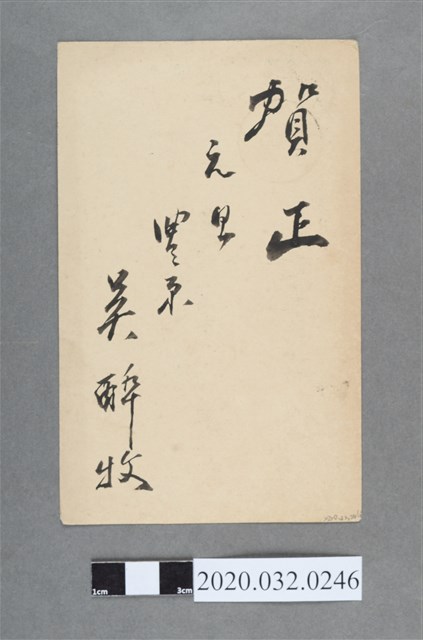 賀正
元旦
豐原
吳醉牧
1cm
3cm
2020.032.0246